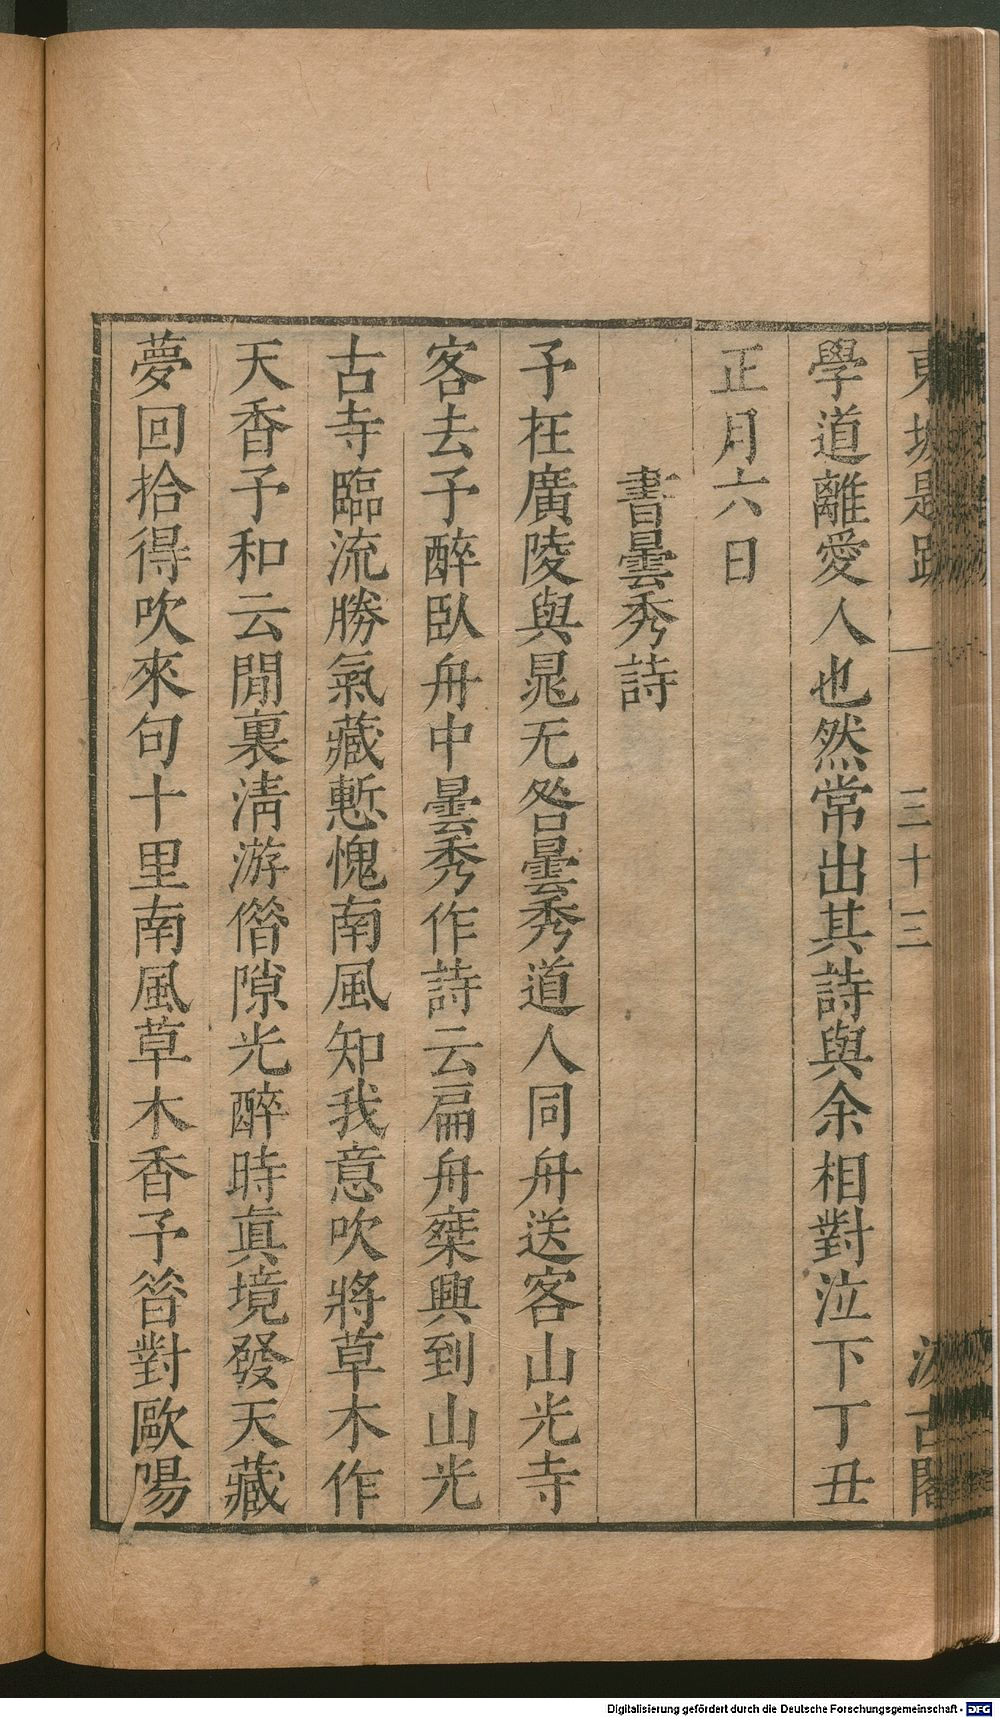 東坡題跋 一 三十三 汲古閣
學道離愛人也然常出其詩與余相對泣下丁丑
正月六日
書曇秀詩
予在廣陵與晁无咎曇秀道人同舟送客山光寺
客去予醉臥舟中曇秀作詩云扁舟乗興到山光
古寺臨流勝氣藏慙愧南風知我意吹將草木作
天香予和云閒裏清游借隙光醉時眞境發天藏
夢回拾得吹來句十里南風草木香予昝對歐陽
Digitalisierung gefördert durch die Deutsche Forschungsgemeinschaft - DFG